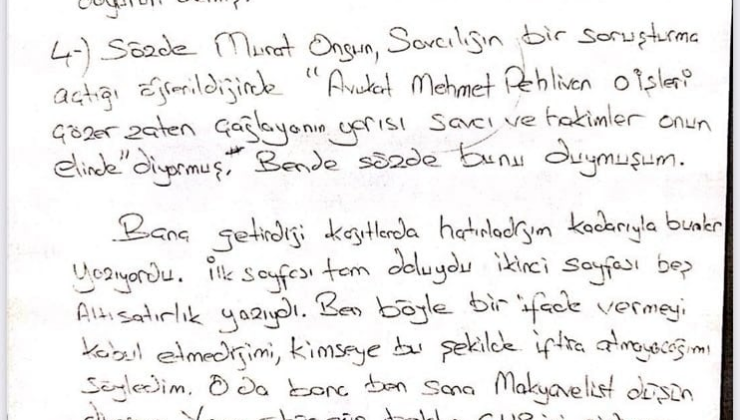 4-) Sözde Murat Ongun, Savcılığın bir soruşturma
açtığı öğrenildiğinde "Avukat Mehmet Pehlivan o işleri
çözer zaten Çağlayanın yarısı savcı ve hakimler onun
elinde" diyormuş. Bende sözde bunu duymuşum.
Bana getirdiği kağıtlarda hatırladığım kadarıyla bunlar
yazıyordu. İlk sayfası tam doluydu ikinci sayfası beş
Altı satırlık yazıydı. Ben böyle bir ifade vermeyi
kabul etmediğimi, kimseye bu şekilde iftira atmayacağımı
söyledim. O da bana ben sana Makyavelist düşün